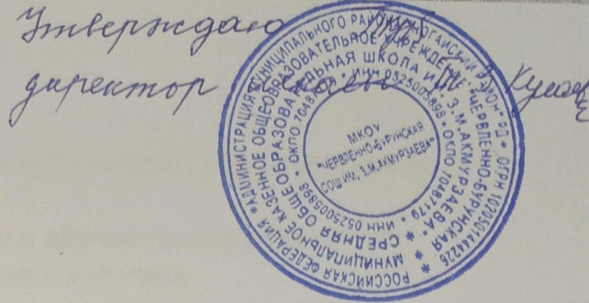 Утверждаю
директор школы
РОССИЙСКАЯ ФЕДЕРАЦИЯ * АДМИНИСТРАЦИЯ МУНИЦИПАЛЬНОГО РАЙОНА "НОГАЙСКИЙ РАЙОН" РД * ОГРН
МУНИЦИПАЛЬНОЕ КАЗЕННОЕ ОБЩЕОБРАЗОВАТЕЛЬНОЕ УЧРЕЖДЕНИЕ "ЧЕРВЛЕННО-БУРУНСКАЯ
СРЕДНЯЯ ОБЩЕОБРАЗОВАТЕЛЬНАЯ ШКОЛА ИМ. З.М.АКМУРЗАЕВА"
ИНН 0525005898 * ОКПО 70487179
МКОУ
"ЧЕРВЛЕННО-БУРУНСКАЯ
СОШ ИМ. З.М.АКМУРЗАЕВА"